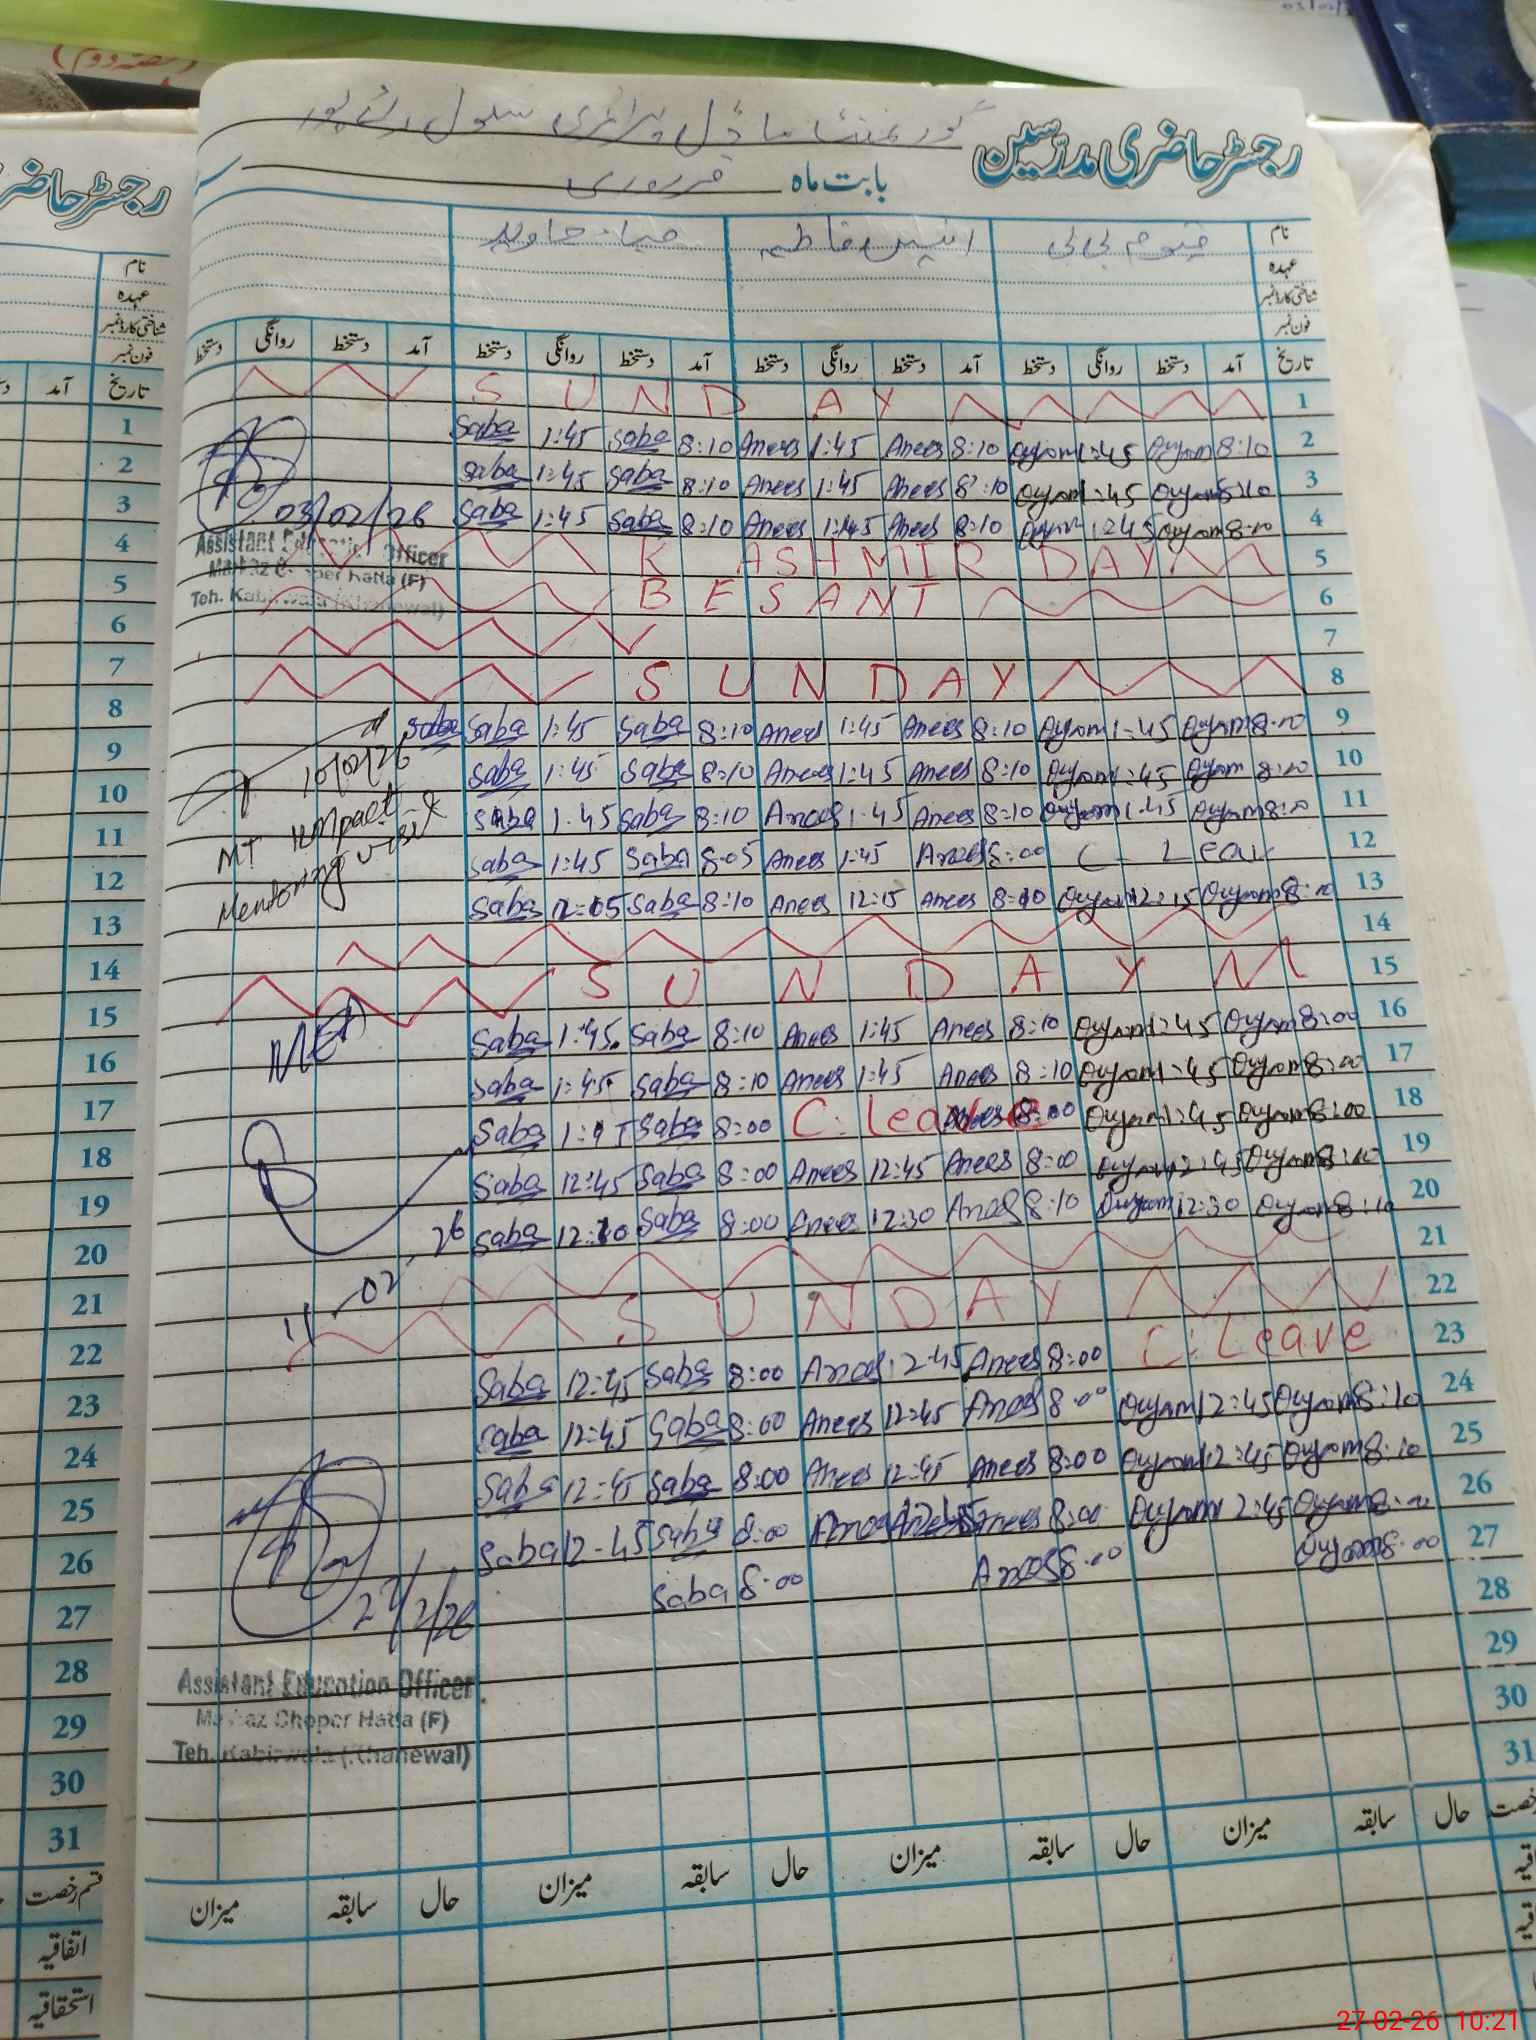 گورنمنٹ ماڈل پرائمری سکول
رجسٹر حاضری مدرّسین
بابت ماہ فروری
نام قیوم بی بی انیس فاطمہ صبا جاوید
عہدہ
شناختی کارڈ نمبر
فون نمبر
تاریخ آمد دستخط روانگی دستخط آمد دستخط روانگی دستخط آمد دستخط روانگی دستخط آمد دستخط روانگی دستخط
SUNDAY 1
Saba 1:45 Saba 8:10 Anees 1:45 Anees 8:10 Quyam 1:45 Quyam 8:10 2
Saba 1:45 Saba 8:10 Anees 1:45 Anees 8:10 Quyam 1:45 Quyam 8:10 3
03/02/26 Saba 1:45 Saba 8:10 Anees 1:45 Anees 8:10 Quyam 1:45 Quyam 8:10 4
Assistant Education Officer
KASHMIR DAY 5
Teh. Kabirwala (Khanewal)
BESANT 6
7
SUNDAY 8
Saba Saba 1:45 Saba 8:10 Anees 1:45 Anees 8:10 Quyam 1:45 Quyam 8:00 9
10/02/26 Saba 1:45 Saba 8:10 Anees 1:45 Anees 8:10 Quyam 1:45 Quyam 8:00 10
Saba 1:45 Saba 8:10 Anees 1:45 Anees 8:10 Quyam 1:45 Quyam 8:00 11
MT
Mentoring visit
Saba 1:45 Saba 8:05 Anees 1:45 Anees 8:00 C - Leav 12
Saba 12:05 Saba 8:10 Anees 12:15 Anees 8:10 Quyam 12:15 Quyam 8:10 13
14
SUNDAY 15
Saba 1:45 Saba 8:10 Anees 1:45 Anees 8:10 Quyam 1:45 Quyam 8:00 16
Saba 1:45 Saba 8:10 Anees 1:45 Anees 8:10 Quyam 1:45 Quyam 8:00 17
Saba Saba 8:00 C. Leave 8:00 Quyam 1:45 Quyam 8:00 18
Saba 12:45 Saba 8:00 Anees 12:45 Anees 8:00 Quyam 12:45 Quyam 8:10 19
Saba Saba 8:00 Anees 12:30 Anees 8:10 Quyam 12:30 Quyam 8:10 20
11-02.26
21
SUNDAY 22
Saba 12:45 Saba 8:00 Anees 12:45 Anees 8:00 C. Leave 23
Saba 12:45 Saba 8:00 Anees 12:45 Anees 8:00 Quyam 12:45 Quyam 8:10 24
Saba 12:45 Saba 8:00 Anees 12:45 Anees 8:00 Quyam 12:45 Quyam 8:10 25
Saba 12-45 Saba 8:00 Anees Anees 8:00 Quyam 12:45 Quyam 8:00 26
Saba 8:00 Anees 8:00 Quyam 8:00 27
27/2/26
28
Assistant Education Officer
29
Markaz Choper Hatta (F)
30
Teh. Kabirwala (Khanewal)
31
حال سابقہ میزان حال سابقہ میزان حال سابقہ میزان حال سابقہ میزان
رجسٹر حاضر
نام
عہدہ
شناختی کارڈ نمبر
فون نمبر
تاریخ آمد
1
2
3
4
5
6
7
8
9
10
11
12
13
14
15
16
17
18
19
20
21
22
23
24
25
26
27
28
29
30
31
قسم رخصت
اتفاقیہ
استحقاقیہ
27-02-26 10:21